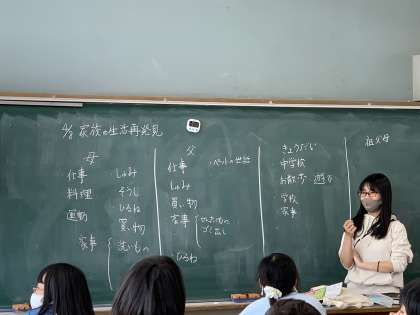 家族の生活再発見
母
仕事 しゅみ
料理 そうじ
運動 ひるね
買い物
家事 洗いもの
父
仕事 ・ペットの世話
しゅみ
買い物
家事 せんたくもの
ゴミ出し
ひるね
きょうだい
中学校
お散歩・遊ぶ
学校
家事
祖父母